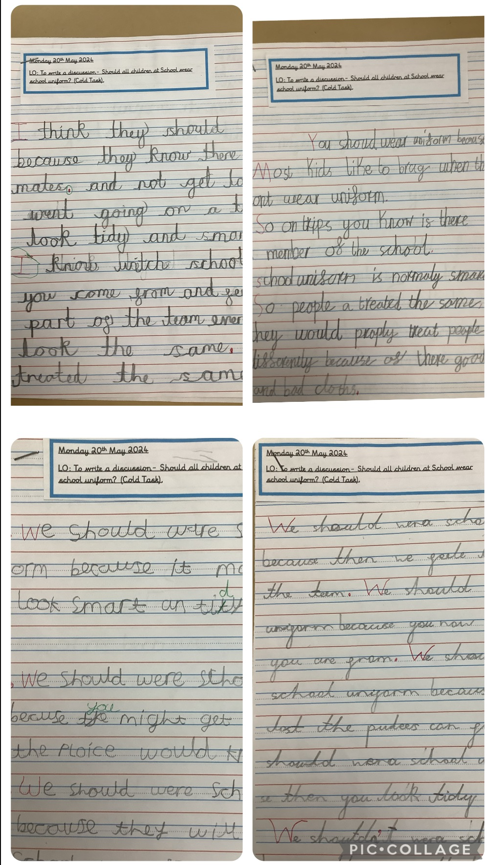 Monday 20th May 2024
LO: To write a discussion- Should all children at School wear
school uniform? (Cold Task).
I think they should
because they know there
mates, and not get lo
went going on a t
look tidy and smar
I know witch school
you come from and ge
part of the team ever
look the same.
treated the sam
Monday 20th May 2024
LO: To write a discussion- Should all children at School wear
school uniform? (Cold Task).
You should wear uniform becaus
Most kids like to brag when th
ont wear uniform.
So on trips you know is there
member of the school.
school uniform is normaly smar
So people a treated the same
hey would proply treat people
differently because of there good
and bad cloths.
Monday 20th May 2024
LO: To write a discussion- Should all children at
school uniform? (Cold Task).
We should were s
orm because it ma
look smart un tidy
We should were scho
becuse you might get
the ploice would k
We should were sch
because they will
School
Monday 20th May 2024
LO: To write a discussion- Should all children at School wear
school uniform? (Cold Task).
We should wera scho
because then we
the team. We should
unyorm because you now
you are from. We shou
school unyorm becaus
lost the can
should wera school u
e then you look tidy
We shouldn't wera sch
PIC•COLLAGE